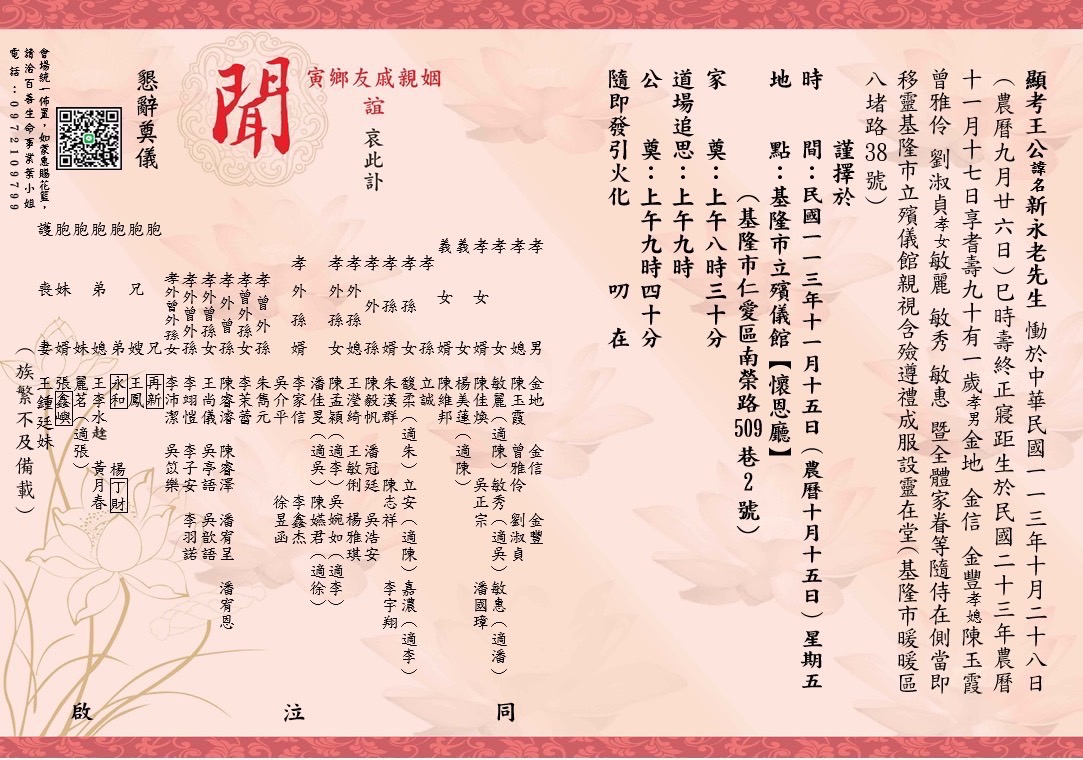 顯考王公諱名新永老先生 慟於中華民國一一三年十月二十八日
（農曆九月廿六日）巳時壽終正寢距生於民國二十三年農曆
十一月十七日享耆壽九十有一歲孝男金地 金信 金豐孝媳陳玉霞
曾雅伶 劉淑貞孝女敏麗 敏秀 敏惠 暨全體家眷等隨侍在側當即
移靈基隆市立殯儀館親視含殮遵禮成服設靈在堂（基隆市暖暖區
八堵路38號）
謹擇於
時間：民國一一三年十一月十五日（農曆十月十五日）星期五
地點：基隆市立殯儀館【懷恩廳】
（基隆市仁愛區南榮路509巷2號）
家奠：上午八時三十分
道場追思：上午九時
公奠：上午九時四十分
隨即發引火化 叨在
姻親戚友鄉寅
誼
哀此訃
聞
懇辭奠儀
會場統一佈置，如蒙惠賜花籃，
請洽百善生命事業葉小姐
電話：0972109799
孝男 金地 金信 金豐
孝媳 陳玉霞 曾雅伶 劉淑貞
孝女 敏麗（適陳）敏秀（適吳）敏惠（適潘）
孝女婿 陳佳煥 吳正宗 潘國璋
義女 楊美蓮（適陳）
義女婿 陳維邦
孝孫 立誠
孝孫女 馥柔（適朱）立安（適陳）嘉濃（適李）
孝孫婿 朱漢群 陳志祥 李宇翔
孝外孫 陳毅帆 潘冠廷 吳浩安
孝外孫媳 王瀅綺 王敏俐 楊雅琪
孝外孫女 陳孟穎（適潘）吳婉如（適李）
潘佳旻（適吳）陳嬿君（適徐）
孝外孫婿 李家信 李鑫杰
吳介平 徐昱函
孝曾外孫 朱雋元
孝曾外孫女 李茉蕾
孝外曾孫 陳睿濬 陳睿澤 潘宥呈 潘宥恩
孝外曾孫女 王尚儀 吳亭語 吳歆語
孝外曾外孫 李翊愷 李子安 李羽諾
孝外曾外孫女 李沛潔 吳苡樂
胞兄 再新
胞兄嫂 王鳳
胞弟 永和 楊丁財
胞弟媳 王李水趖 黃月春
胞妹 麗茗（適張）
胞妹婿 張鑫嶼
護喪妻 王鍾廷妹
（族繁不及備載）
同 泣 啟